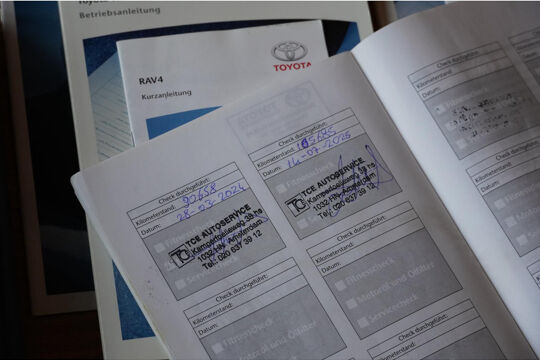 Betriebsanleitung
RAV4
Kurzanleitung
TOYOTA
Check durchgeführt:
Kilometerstand: 92658
Datum: 28-03-2024
TCE AUTOSERVICE
Kamperfoelieweg 39 hs
1032 HN Amsterdam
Tel.: 020 637 39 12
Check durchgeführt:
Kilometerstand:
Datum:
Fitnesscheck
Motoröl und Ölfilter
Check durchgeführt:
Kilometerstand:
Datum: 14-07-2025
Fitnesscheck
TCE AUTOSERVICE
Kamperfoelieweg 39 hs
1032 HN Amsterdam
Tel.: 020 637 39 12
Check durchgeführt:
Kilometerstand:
Datum:
Fitnesscheck
Motoröl und Ölfilter
Servicecheck
Check durchgeführt:
Kilometerstand:
Datum:
Kilometerstand:
Datum:
Check durchgeführt:
Kilometerstand:
Datum: